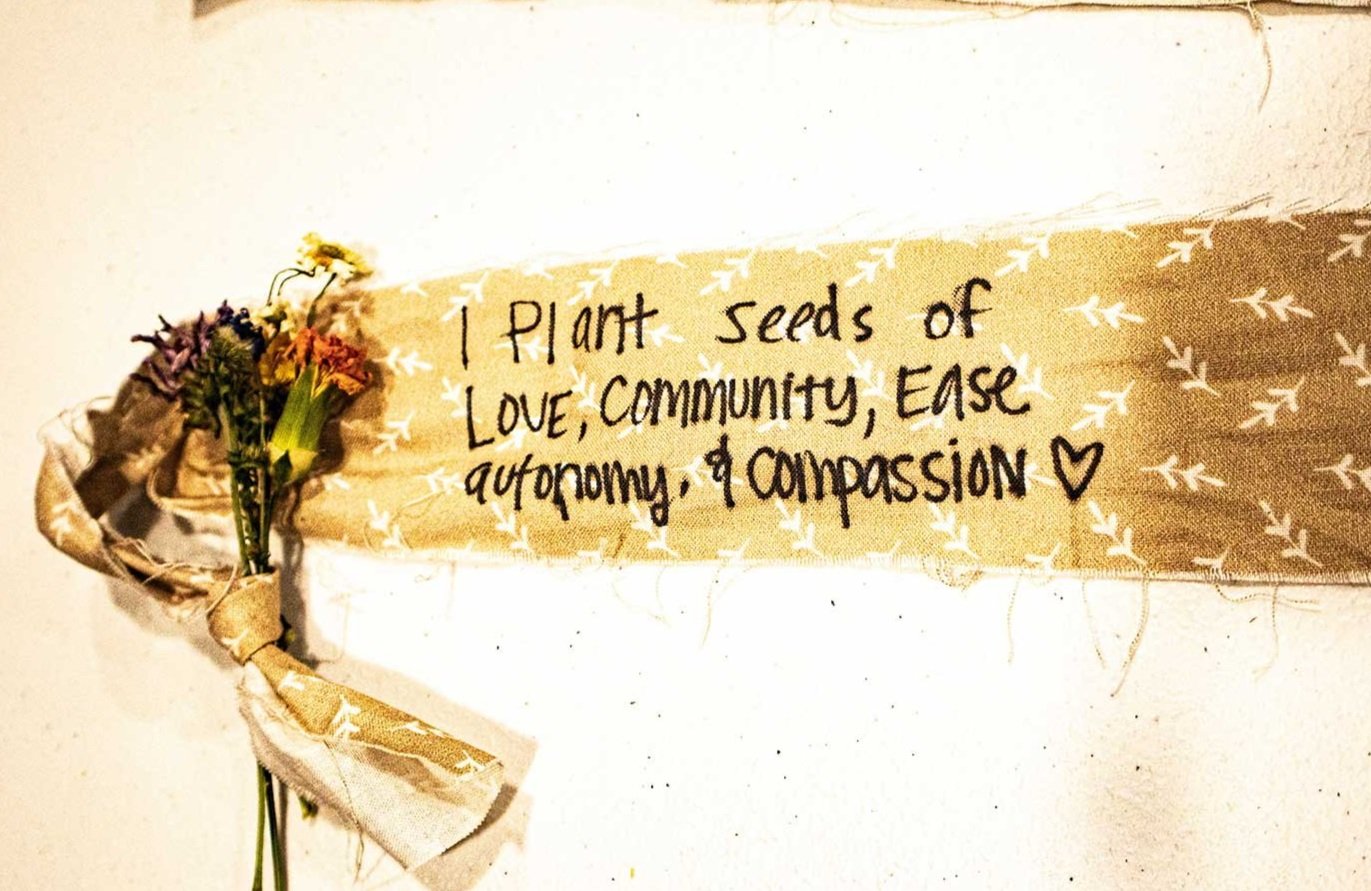 I Plant seeds of
LOVE, COMMUNITY, EASE
autonomy, & COMPASSION ♡